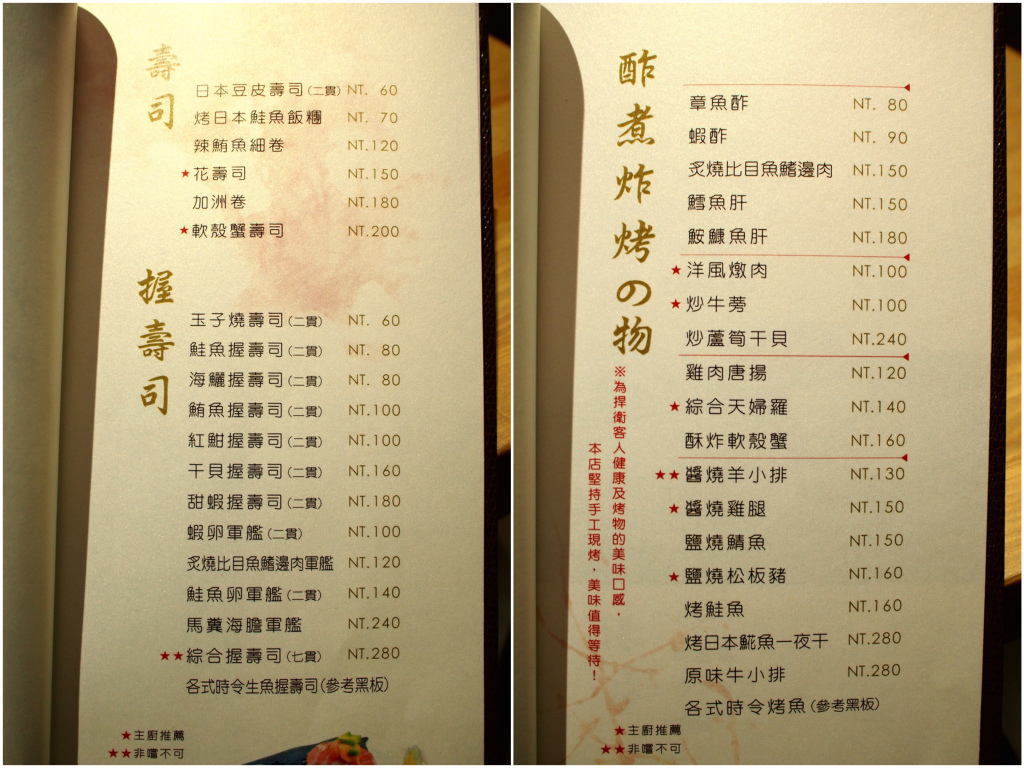 壽司
日本豆皮壽司(二貫) NT. 60
烤日本鮭魚飯糰 NT. 70
辣鮪魚細卷 NT.120
★花壽司 NT.150
加洲卷 NT.180
★軟殼蟹壽司 NT.200
握壽司
玉子燒壽司(二貫) NT. 60
鮭魚握壽司(二貫) NT. 80
海鱺握壽司(二貫) NT. 80
鮪魚握壽司(二貫) NT.100
紅魽握壽司(二貫) NT.100
干貝握壽司(二貫) NT.160
甜蝦握壽司(二貫) NT.180
蝦卵軍艦(二貫) NT.100
炙燒比目魚鰭邊肉軍艦 NT.120
鮭魚卵軍艦(二貫) NT.140
馬糞海膽軍艦 NT.240
★★綜合握壽司(七貫) NT.280
各式時令生魚握壽司(參考黑板)
★主廚推薦
★★非嚐不可
酢煮炸烤の物
章魚酢 NT. 80
蝦酢 NT. 90
炙燒比目魚鰭邊肉 NT.150
鱈魚肝 NT.150
鮟鱇魚肝 NT.180
★洋風燉肉 NT.100
★炒牛蒡 NT.100
炒蘆筍干貝 NT.240
雞肉唐揚 NT.120
★綜合天婦羅 NT.140
酥炸軟殼蟹 NT.160
★★醬燒羊小排 NT.130
★醬燒雞腿 NT.150
鹽燒鯖魚 NT.150
★鹽燒松板豬 NT.160
烤鮭魚 NT.160
烤日本鯱魚一夜干 NT.280
原味牛小排 NT.280
各式時令烤魚(參考黑板)
※為捍衛客人健康及烤物的美味口感，
本店堅持手工現烤，美味值得等待！
★主廚推薦
★★非嚐不可